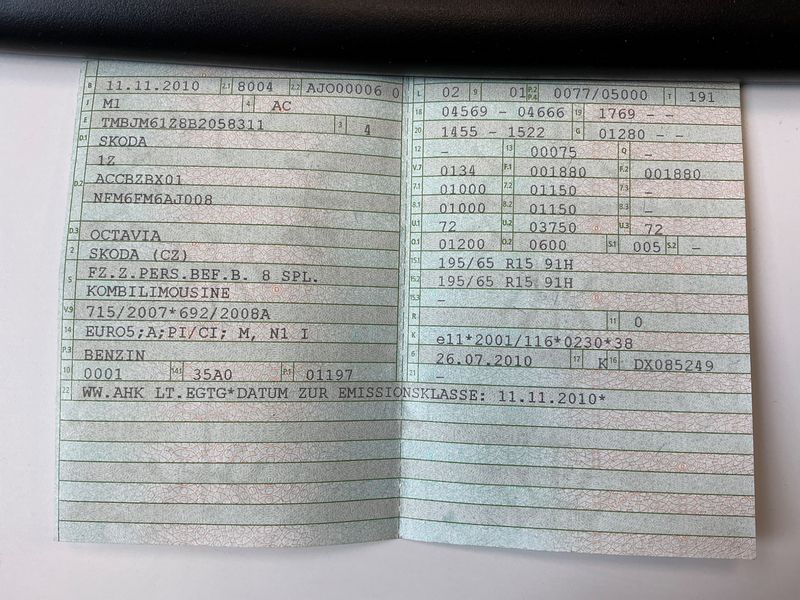 B 11.11.2010 2.1 8004 2.2 AJO00006 0
J M1 4 AC
E TMBJM61Z8B2058311 3 4
D.1 SKODA
1Z
D.2 ACCBZBX01
NFM6FM6AJ008
D.3 OCTAVIA
2 SKODA (CZ)
5 FZ.Z.PERS.BEF.B. 8 SPL.
KOMBILIMOUSINE
V.9 715/2007*692/2008A
14 EURO5;A;PI/CI; M, N1 I
P.3 BENZIN
10 0001 14.1 35A0 P.1 01197
22 WW.AHK LT.EGTG*DATUM ZUR EMISSIONSKLASSE: 11.11.2010*
L 02 9 01 P.2 P.4 0077/05000 T 191
18 04569 - 04666 19 1769 - -
20 1455 - 1522 G 01280 - -
12 - 13 00075 Q -
V.7 0134 F.1 001880 F.2 001880
7.1 01000 7.2 01150 7.3 -
8.1 01000 8.2 01150 8.3 -
U.1 72 U.2 03750 U.3 72
O.1 01200 O.2 0600 S.1 005 S.2 -
15.1 195/65 R15 91H
15.2 195/65 R15 91H
15.3 -
R 11 0
K e11*2001/116*0230*38
6 26.07.2010 17 K 16 DX085249
21 -